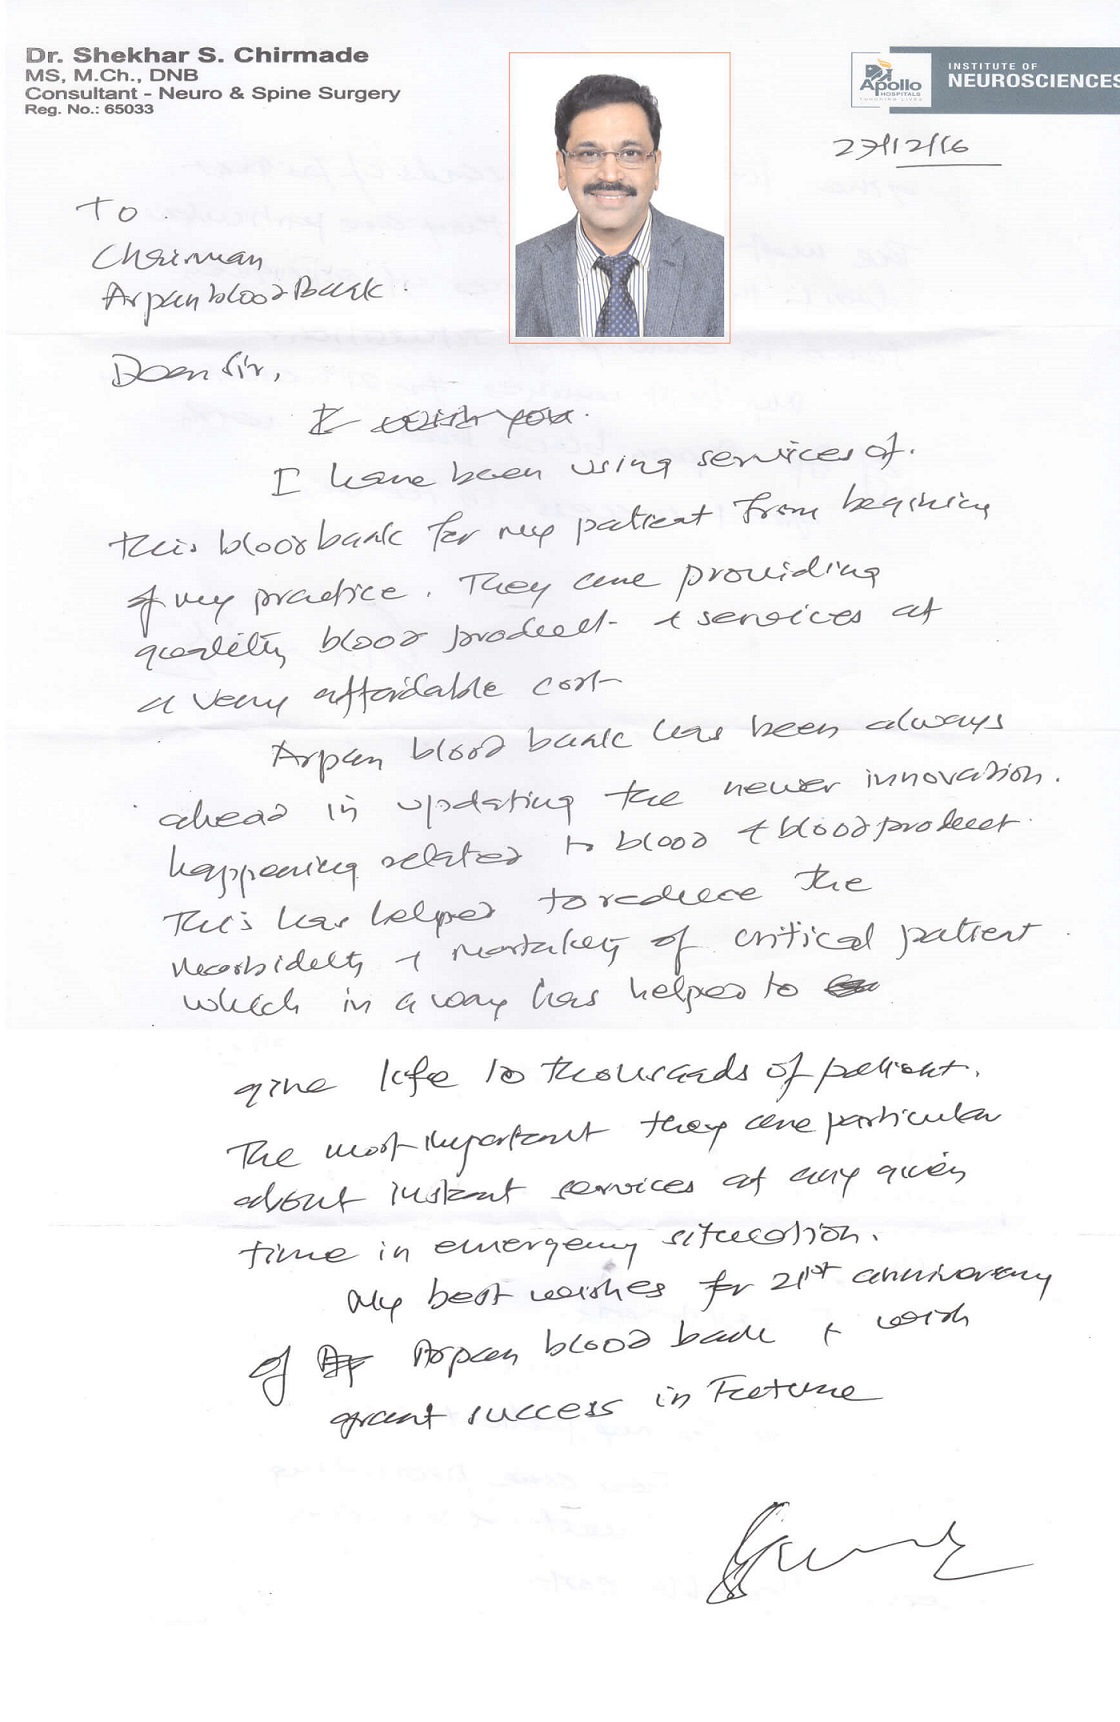 Dr. Shekhar S. Chirmade
MS, M.Ch., DNB
Consultant - Neuro & Spine Surgery
Reg. No.: 65033
Apollo
HOSPITALS
TOUCHING LIVES
INSTITUTE OF
NEUROSCIENCES
27/12/16
To
Chairman
Arpan blood Bank.
Dear Sir,
I wish you.
I have been using services of.
this blood bank for my patient from begining
of my practice. They are providing
quality blood product & services at
a very affordable cost
Arpan blood bank has been always
ahead in updating the newer innovation.
happening related to blood & blood product.
This has helped to reduce the
morbidity & mortality of critical patient.
which in a way has helped to
give life to thousands of patient.
The most important they are particular
about instant services at any given
time in emergency situation.
My best wishes for 21st anniversary
of Arpan blood bank & wish
great success in Future